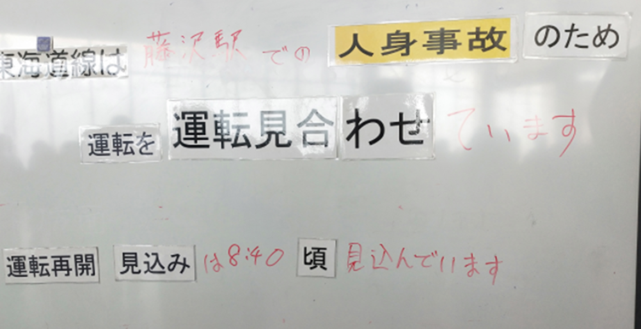 東海道線は藤沢駅での人身事故のため
運転を運転見合わせています
運転再開見込みは8:40頃見込んでいます